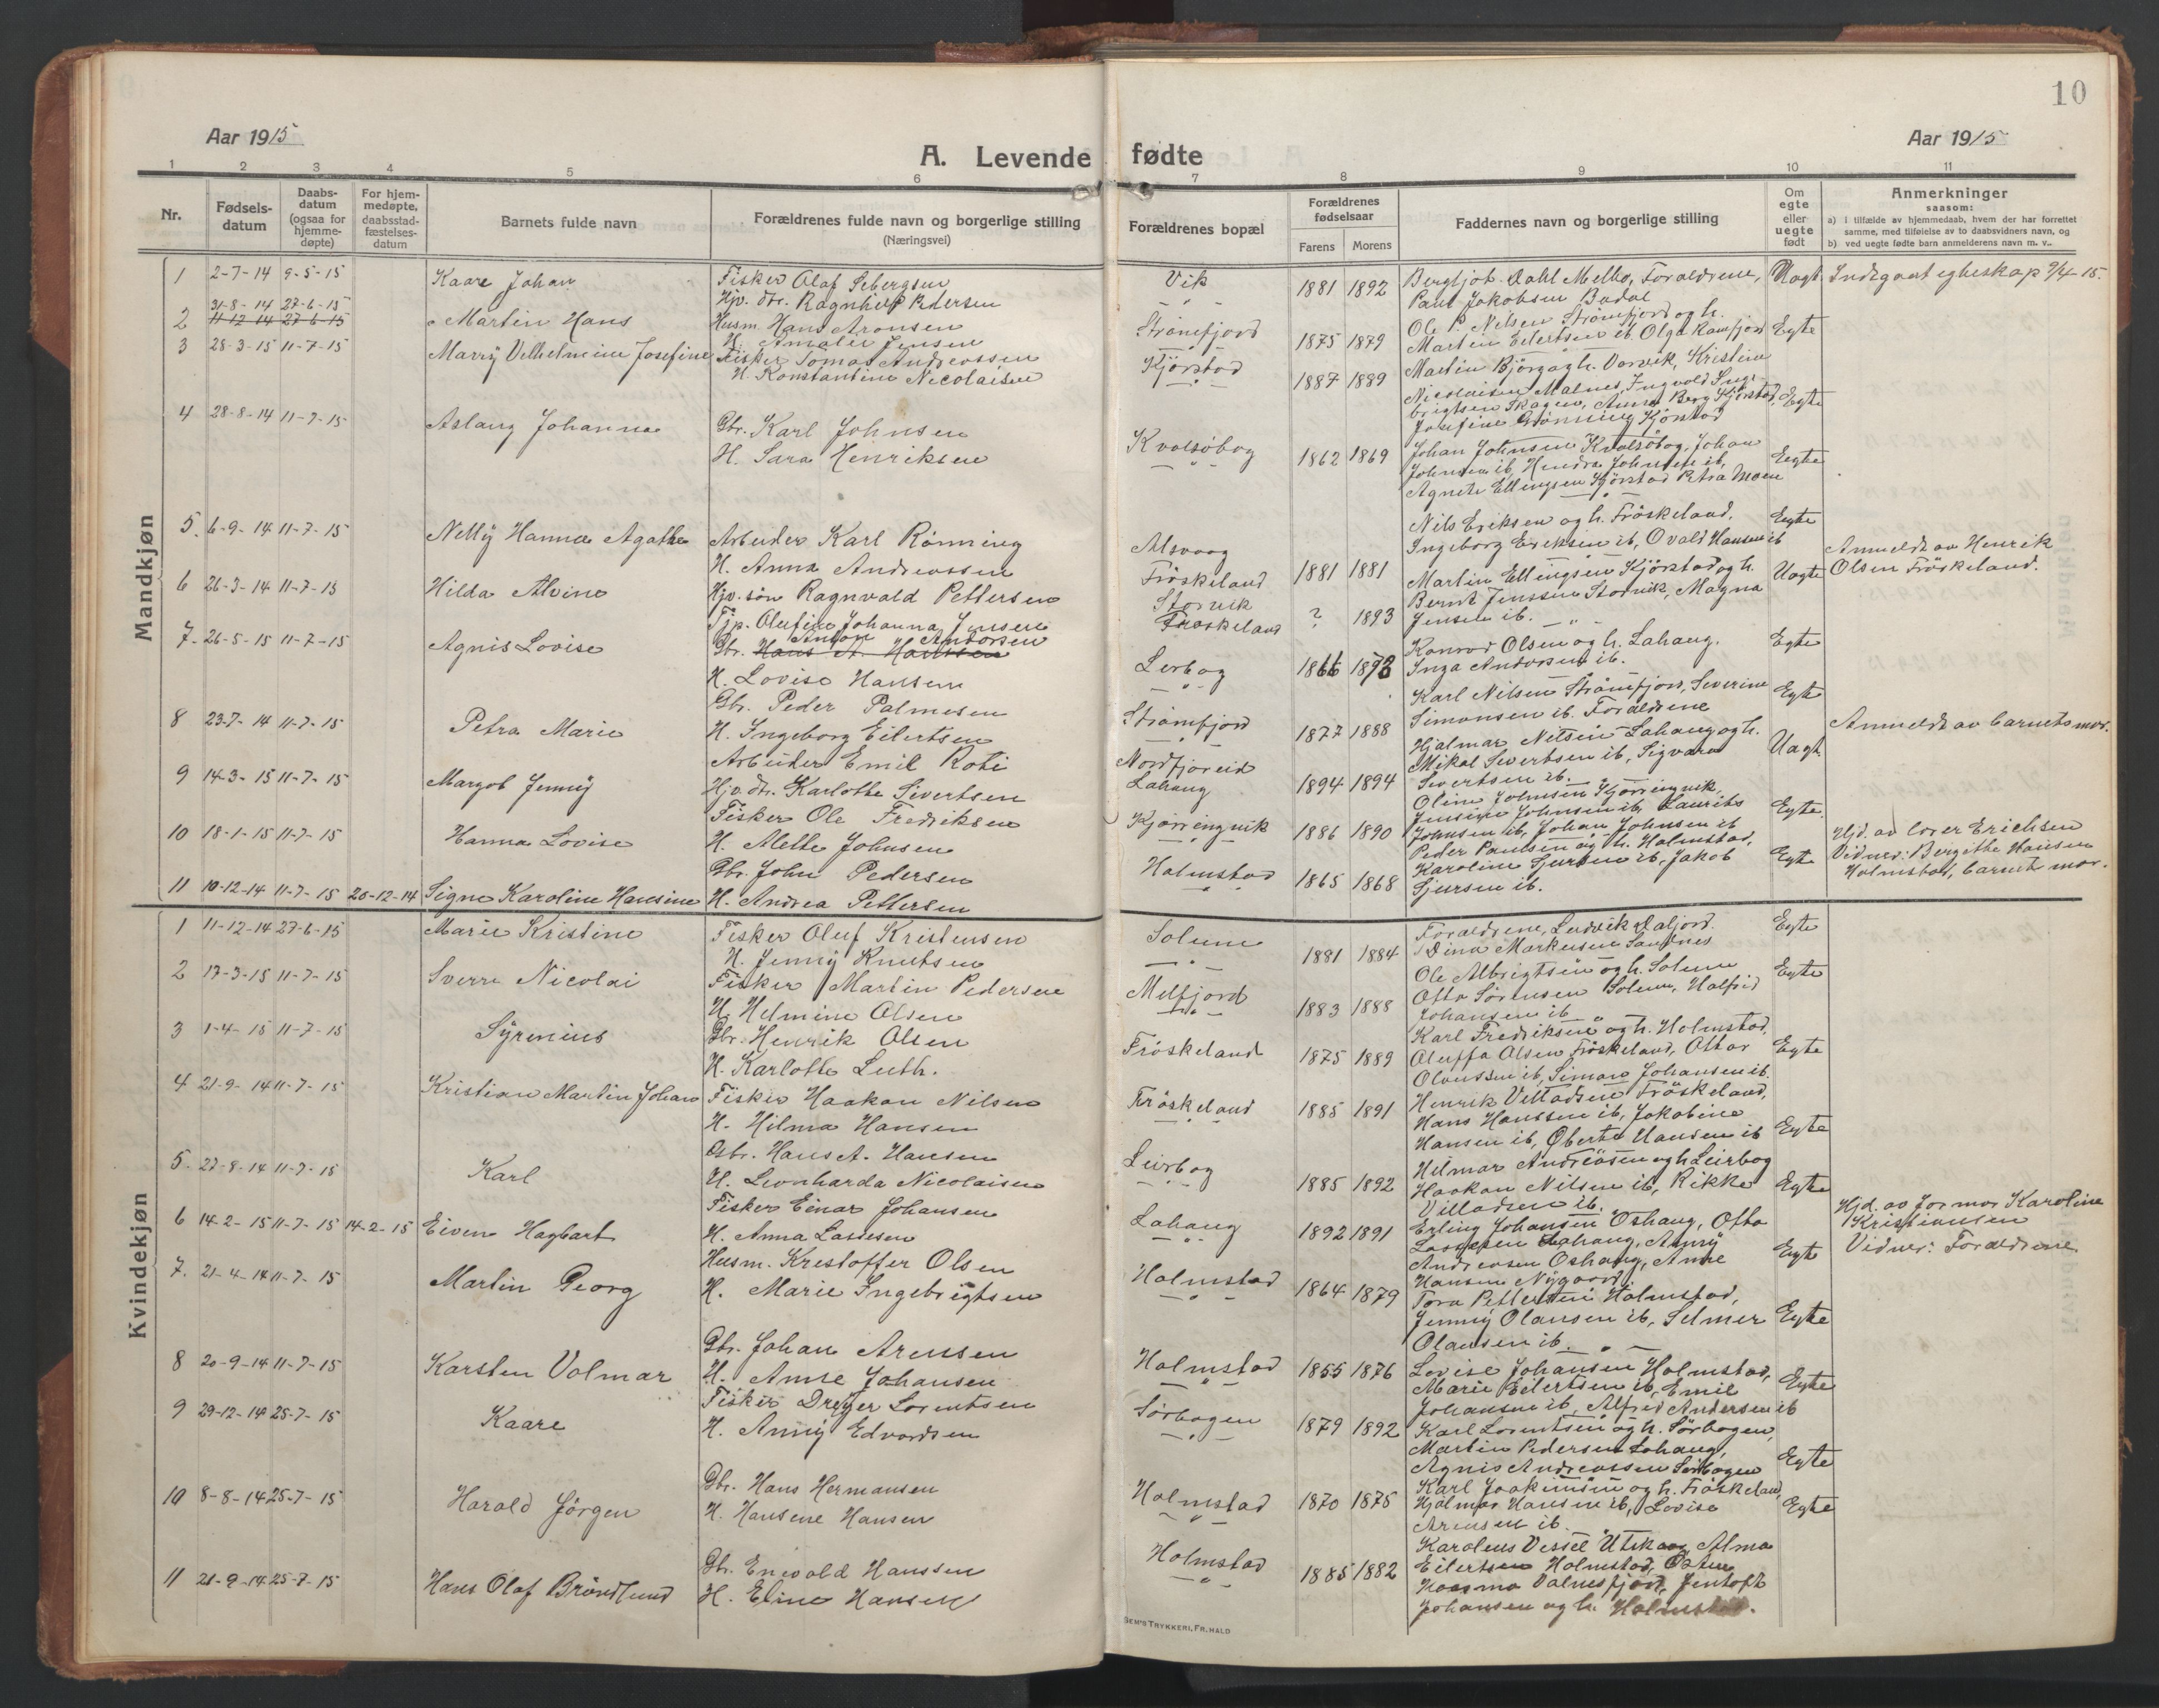 10
Aar 1915
Aar 1915
A. Levende fødte
1 2 3 4 5 6 7 8 9 10 11
Nr.
Fødselsdatum
Daabsdatum (ogsaa for hjemmedøpte)
For hjemmedøpte, daabsstadfæstelsesdatum
Barnets fulde navn
Forældrenes fulde navn og borgerlige stilling
(Næringsvei)
Forældrenes bopæl
Forældrenes fødselsaar
Farens Morens
Faddernes navn og borgerlige stilling
Om egte eller uegte født
Anmerkninger
saasom:
a) i tilfælde av hjemmedaab, hvem der har forrettet
samme, med tilføielse av to daabsvidners navn, og
b) ved uegte fødte barn anmelderens navn m. v..
Mandkjøn
1 2-7-14 9-5-15 Kaare Johan Fisker Olaf Sebergsen Vik 1881 1892 Bergljot Dahl Melbo, Foraeldrene, Uegt. Indgaat egteskap 9/4 15.
Hjv. dtr. Ragnhild Petersen Paul Jakobsen Badal
31-8-14 27-6-15
2 11-12-14 27-6-15 Martin Hans Husm. Hans Aronsen Strømfjord 1875 1879 Ole P. Nilsen Strømfjord og h. Egte
H. Amalie Jensen Martin Eilertsen ib. Olga Ramfjord
3 28-3-15 11-7-15 Marry Vilhelmine Josefine Fisker Tomas Andreassen Kjørstad 1887 1889 Martin Bjørgo og h. Vorvik, Kristine
H. Konstantine Nicolaisen Nicolaisen Malnes, Ingvald Inge-
brigtsen Skagen, Anna Berg Kjørstad, Egte
Josefine Grønning Kjørstad
4 28-8-14 11-7-15 Aslaug Johanna Gbr. Karl Johnsen Kvalsøbog 1862 1869 Johan Johnsen Kvalsøbog, Johan
H. Sara Henriksen Johnsen ib, Hendra Johnsen ib, Eegte
Agnete Ellingsen Kjørstad Petra Moen
5. 6-9-14 11-7-15 Nelly Hanna Agathe Arbeider Karl Rønning Alsvaag Nils Eriksen og h. Frøskeland. Eegte
H. Anna Andreassen Frøskeland 1881 1881 Ingeborg Eriksen ib, Ovald Hansen ib
6 26-3-14 11-7-15 Hilda Alvine Hjv. søn Ragnvald Pettersen Storvik Martin Ellingsen Kjørstad og h. Uegte Anmeldt av Henrik
Tjp. Olufine Johanna Jensen Frøskeland ? 1893 Bernt Jenssen Storvik, Magna Olsen Frøskeland.
Jensen ib.
7. 26-5-15 11-7-15 Agnis Lovise Gbr. Anton Andorsen Lerbog 1866 1873 Konrad Olsen og h. Lahaug. Egte
Hans A. Hanssen
H. Lovise Hansen Inga Andorsen ib.
8 23-7-14 11-7-15 Petra Marie Gbr. Peder Palmesen Strømfjord 1877 1888 Karl Nilsen Strømfjord, Severine Egte
H. Ingeborg Eilertsen Simonsen ib. Foraeldrene
9 14-3-15 11-7-15 Margot Jenny Arbeider Emil Roti Nordfjoreid 1894 1894 Hjalmar Nilsen Lahaug og h. Uegt. Anmeldt av barnets mor.
Hjv. dtr. Karlotte Sivertsen Lahaug Mikal Sivertsen ib, Sigvard
Sivertsen ib.
10 18-1-15 11-7-15 Hanna Lovise Fisker Ole Fredriksen Kjørringvik 1886 1890 Oline Johnsen Kjørringvik, Egte.
H. Mette Johnsen Jensine Johnsen ib, Laurits
Johnsen ib, Johan Johnsen ib
11 10-12-14 11-7-15 20-12-14 Signe Karoline Hansine Gbr. John Pedersen Holmstad 1865 1868 Peder Paulsen og h. Holmstad, Egte Hjd. av lærer Erichsen
H. Andrea Pettersen Karoline Sjursen ib, Jakob Vidner: Bergithe Hansen
Sjursen ib. Holmstad, barnets mor.
Kvindekjøn
1 11-12-14 27-6-15 Marie Kristine Fisker Oluf Kristensen Solum 1881 1884 Foraeldrene, Ludvik Daljord. Egte
H. Jenny Knutsen Dina Markusen Sandnes
2 17-3-15 11-7-15 Sverre Nicolai Fisker Martin Pedersen Melfjord 1883 1888 Ole Albrigtsen og h. Solum Egte
H. Helmine Olsen Otto Sørensen Solum, Halfrid
Johansen ib
3 1-4-15 11-7-15 Syrenius Gbr. Henrik Olsen Frøskeland 1875 1889 Karl Fredriksen og h. Holmstad, Egte
H. Karlotte Luth. Oluffa Olsen Frøskeland, Ottar
Olaussen ib, Simon Johansen ib.
4 21-9-14 11-7-15 Kristian Martin Johan Fisker Haakon Nilsen Frøskeland 1885 1891 Henrik Villadsen Frøskeland,
H. Hilma Hansen Hans Hanssen ib, Jakobine
Hansen ib, Oberta Hansen ib Egte
5. 27-8-14 11-7-15 Karl Gbr. Hans A. Hansen Leirbog 1885 1892 Hilmar Andreasen og h Leirbog
H. Leonharda Nicolaisen Haakon Nilsen ib, Rikke Egte
Villadsen ib.
6 14-2-15 11-7-15 14-2-15 Eiven Hagbart Fisker Einar Johansen Lahaug 1892 1891 Erling Johansen Oshaug, Otto Hjd. av formor Karoline
H. Anna Lassesen Lassesen Lahaug, Anny Kristiansen
Andreasen Oshaug, Anne Egte Vidner: Foraeldrene
Hansen Nygaard.
7. 21-4-14 11-7-15 Martin Georg Husm. Krestoffer Olsen Holmstad 1864 1879 Tora Pettersen Holmstad,
H. Marie Ingebrigtsen Jenny Olausen ib, Selmer Egte
Olausen ib.
8 20-9-14 11-7-15 Karsten Volmar Gbr. Johan Arensen Holmstad 1855 1876 Lovise Johansen Holmstad,
H. Anne Johansen Marie Eilertsen ib, Emil Egte
Johansen ib, Alfred Andersen ib
9 29-12-14 25-7-15 Kaare Fisker Dreyer Lorentsen Sørbogen 1879 1892 Karl Lorentsen og h. Sørbogen,
H. Anny Edvardsen Martin Pedersen Lahaug,
Agnis Andreassen Sørbogen Egte
10 8-8-14 25-7-15 Harald Jørgen Gbr. Hans Hermansen Holmstad 1870 1875 Karl Joakimsen og h. Frøskeland,
H. Hansene Hansen Hjalmar Hansen ib, Lovise Egte
Arensen ib.
11 21-9-14 25-7-15 Hans Olaf Brøndlund Gbr. Enevold Hanssen Holmstad 1885 1882 Karolius Vessel Utskaar, Alma
H. Eline Hansen Eilertsen Holmstad,
Valnesfjord, Jentoft
Johansen og h. Holmstad.
SEM'S TRYKKERI, FR.HALD